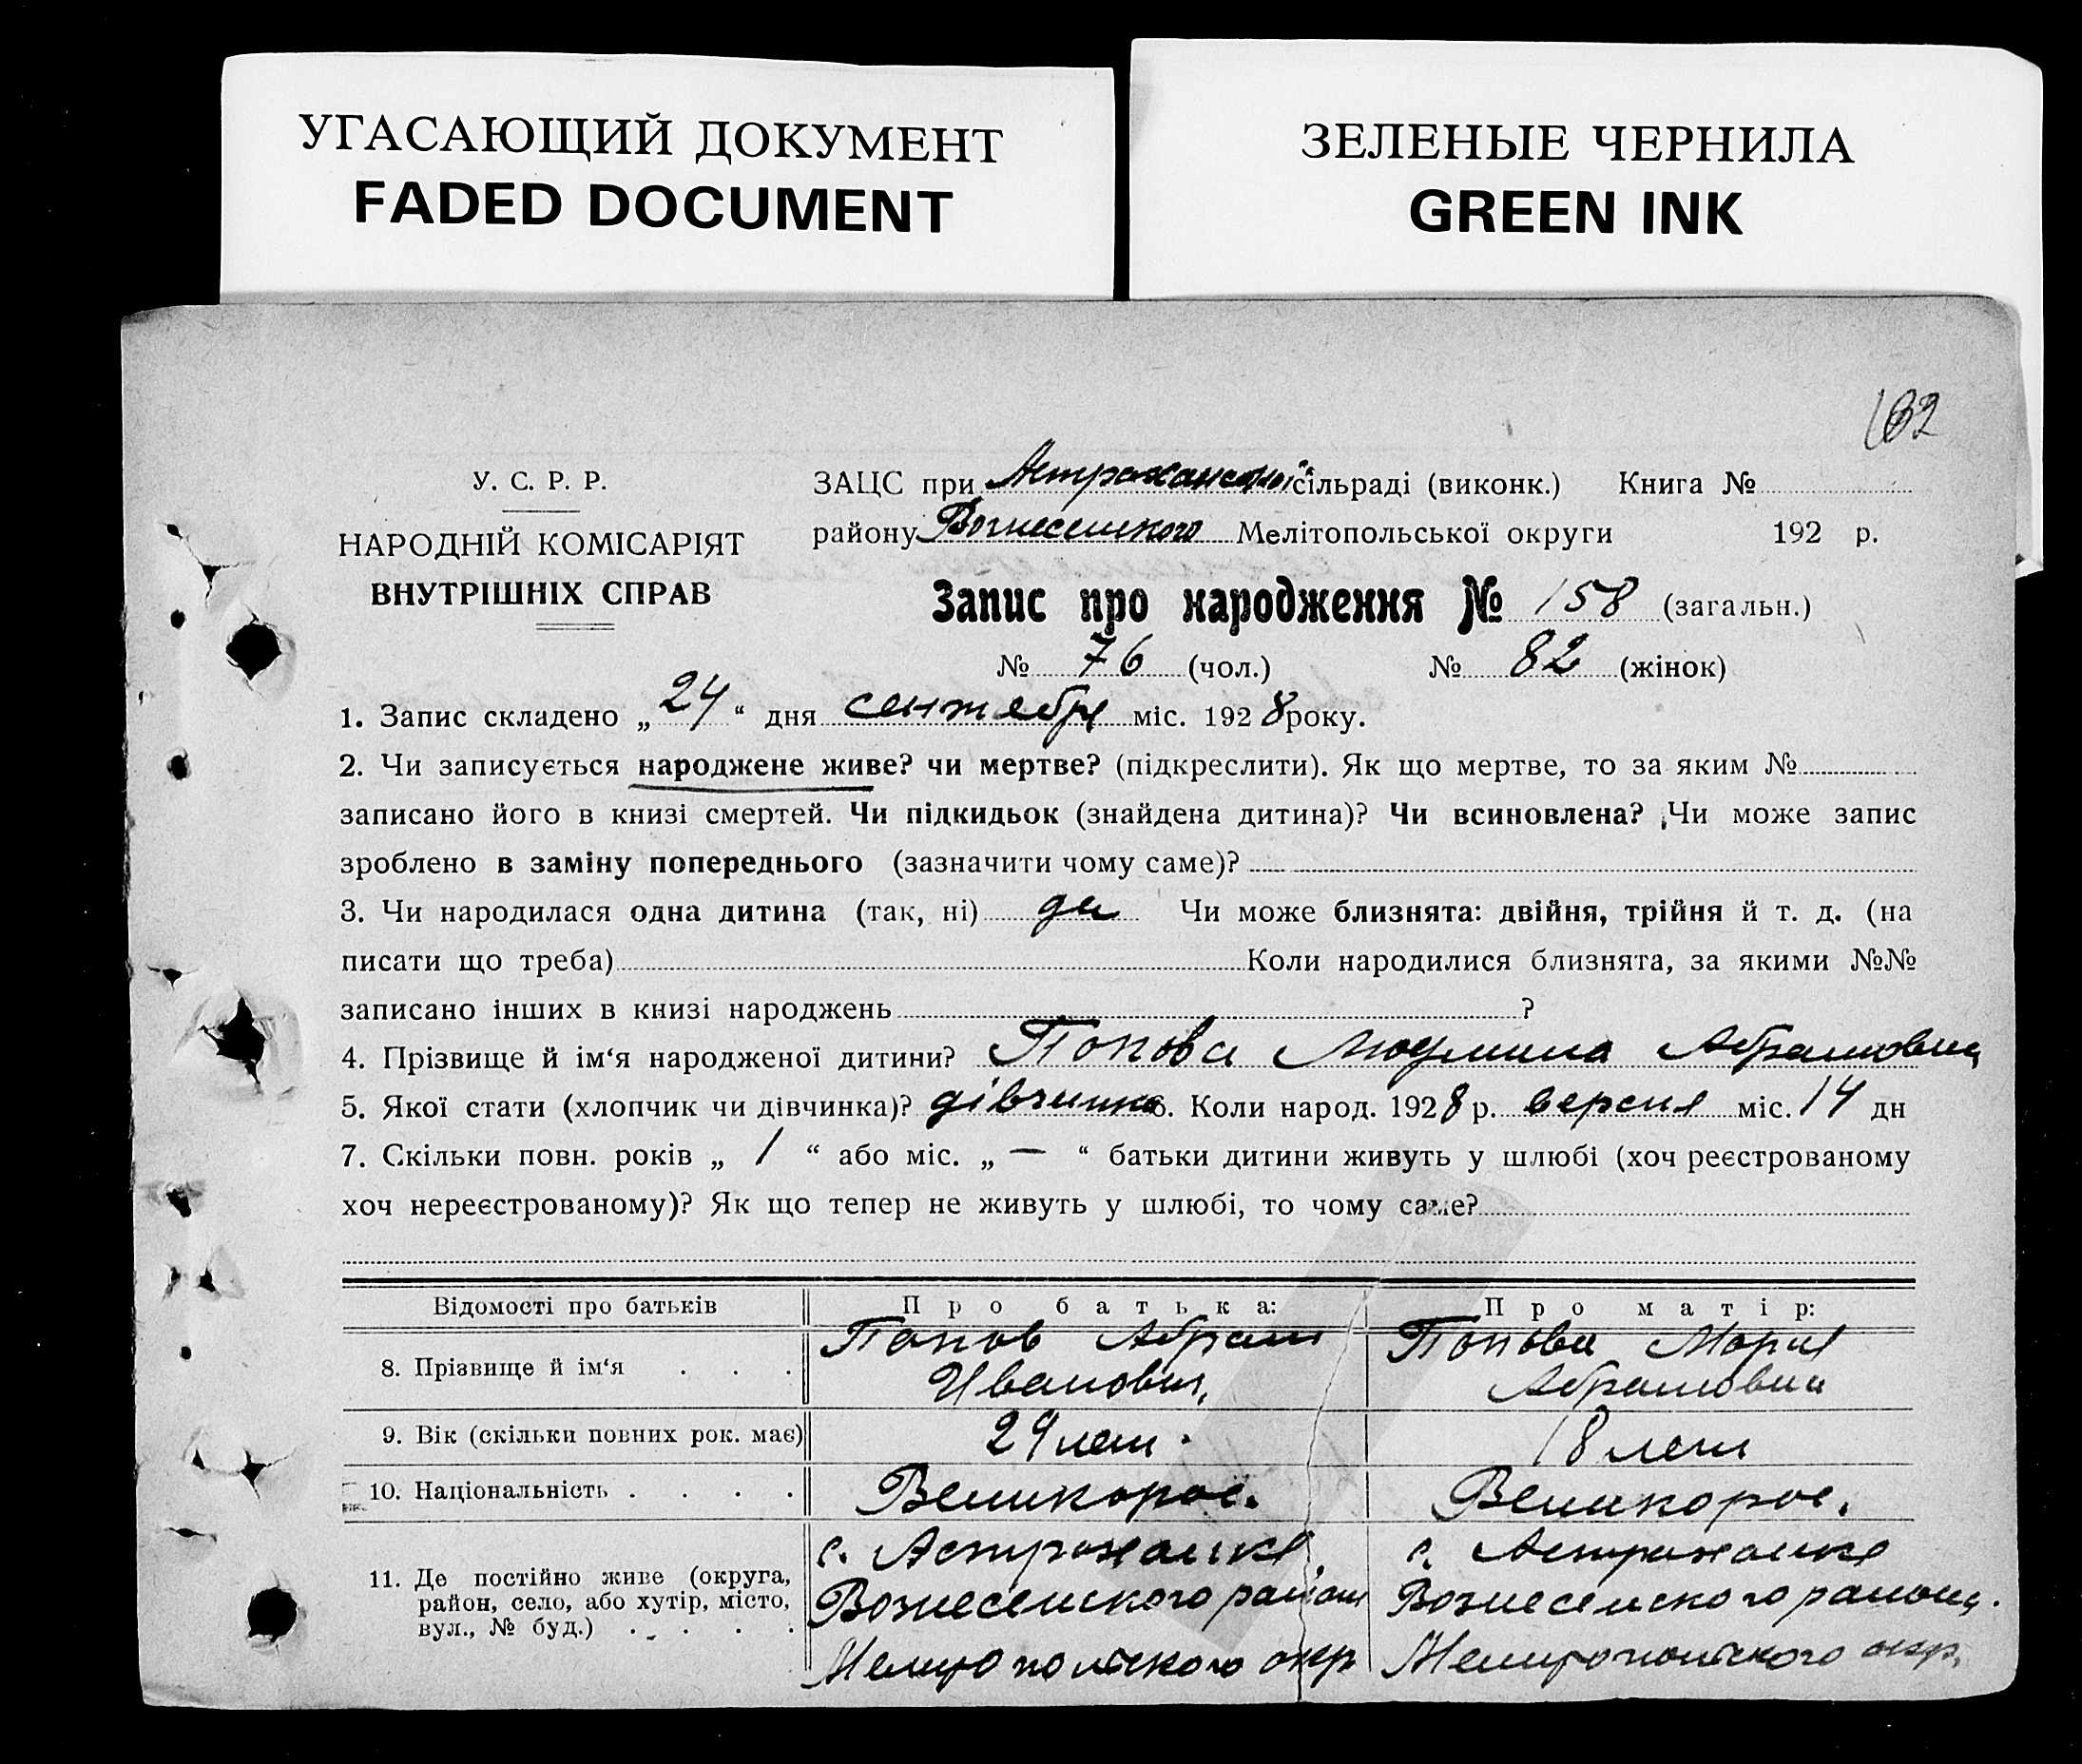 УГАСАЮЩИЙ ДОКУМЕНТ
FADED DOCUMENT
ЗЕЛЕНЫЕ ЧЕРНИЛА
GREEN INK
У. С. Р. Р.
НАРОДНІЙ КОМІСАРІЯТ
ВНУТРІШНІХ СПРАВ
ЗАЦС при Астраханської сільраді (виконк.) Книга №
району Вознесенского Мелітопольської округи 192 р.
Запис про народження № 158 (загальн.)
№ 76 (чол.) № 82 (жінок)
1. Запис складено „24“ дня сентебря міс. 1928 року.
2. Чи записується народжене живе? чи мертве? (підкреслити). Як що мертве, то за яким №
записано його в книзі смертей. Чи підкидьок (знайдена дитина)? Чи всиновлена? Чи може запис
зроблено в заміну попереднього (зазначити чому саме)?
3. Чи народилася одна дитина (так, ні) да Чи може близнята: двійня, трійня й т. д. (на
писати що треба) Коли народилися близнята, за якими №№
записано інших в книзі народжень ?
4. Прізвище й ім‘я народженої дитини? Попова Людмила Абрамовна
5. Якої стати (хлопчик чи дівчинка)? дівчинка 6. Коли народ. 1928 р. версня міс. 14 дн
7. Скільки повн. років „ 1 “ або міс. „ — “ батьки дитини живуть у шлюбі (хоч реєстрованому
хоч нереєстрованому)? Як що тепер не живуть у шлюбі, то чому саме?
Відомості про батьків Про батька: Про матір:
8. Прізвище й ім‘я . . . Попов Абрам Иванович Попова Мария Абрамовна
9. Вік (скільки повних рок. має) 29 лет. 18 лет
10. Національність . . . . Великорос. Великорос.
11. Де постійно живе (округа,
район, село, або хутір, місто,
вул., № буд.) . . . .
с. Астраханка
Вознесенского района
Мелитопольского окр
с. Астраханка
Вознесенского района.
Мелитопольского окр.